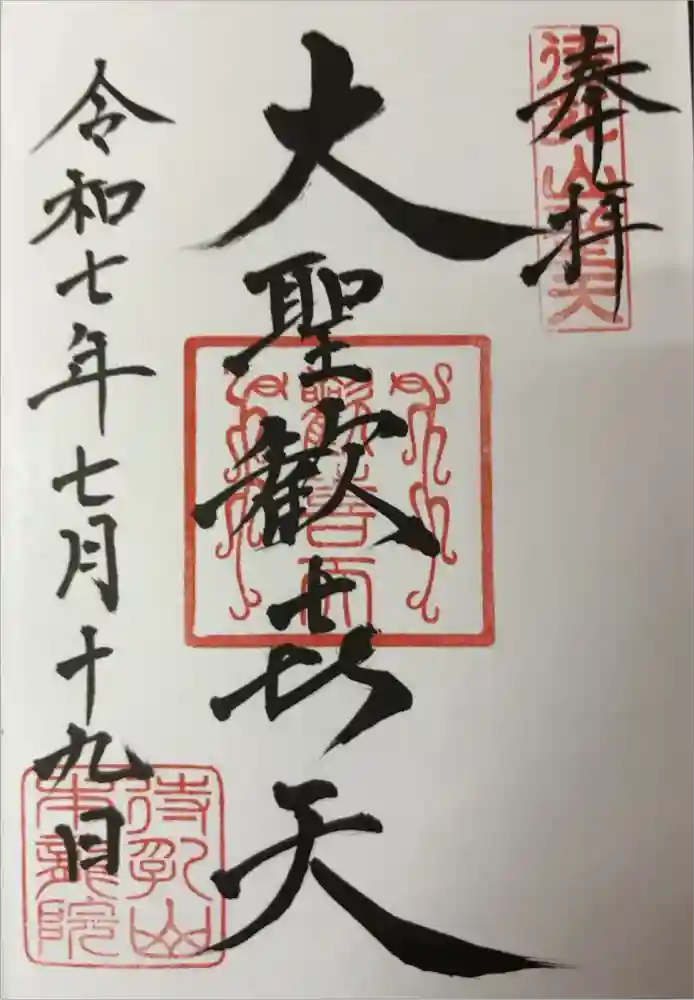 奉拝
大聖歓㐂天
令和七年七月十九日
歓喜天
待乳山
本龍院